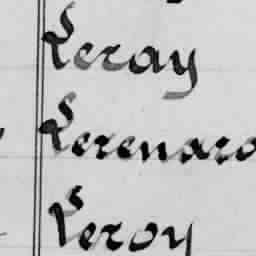 Leray
Lerenard
Leroy